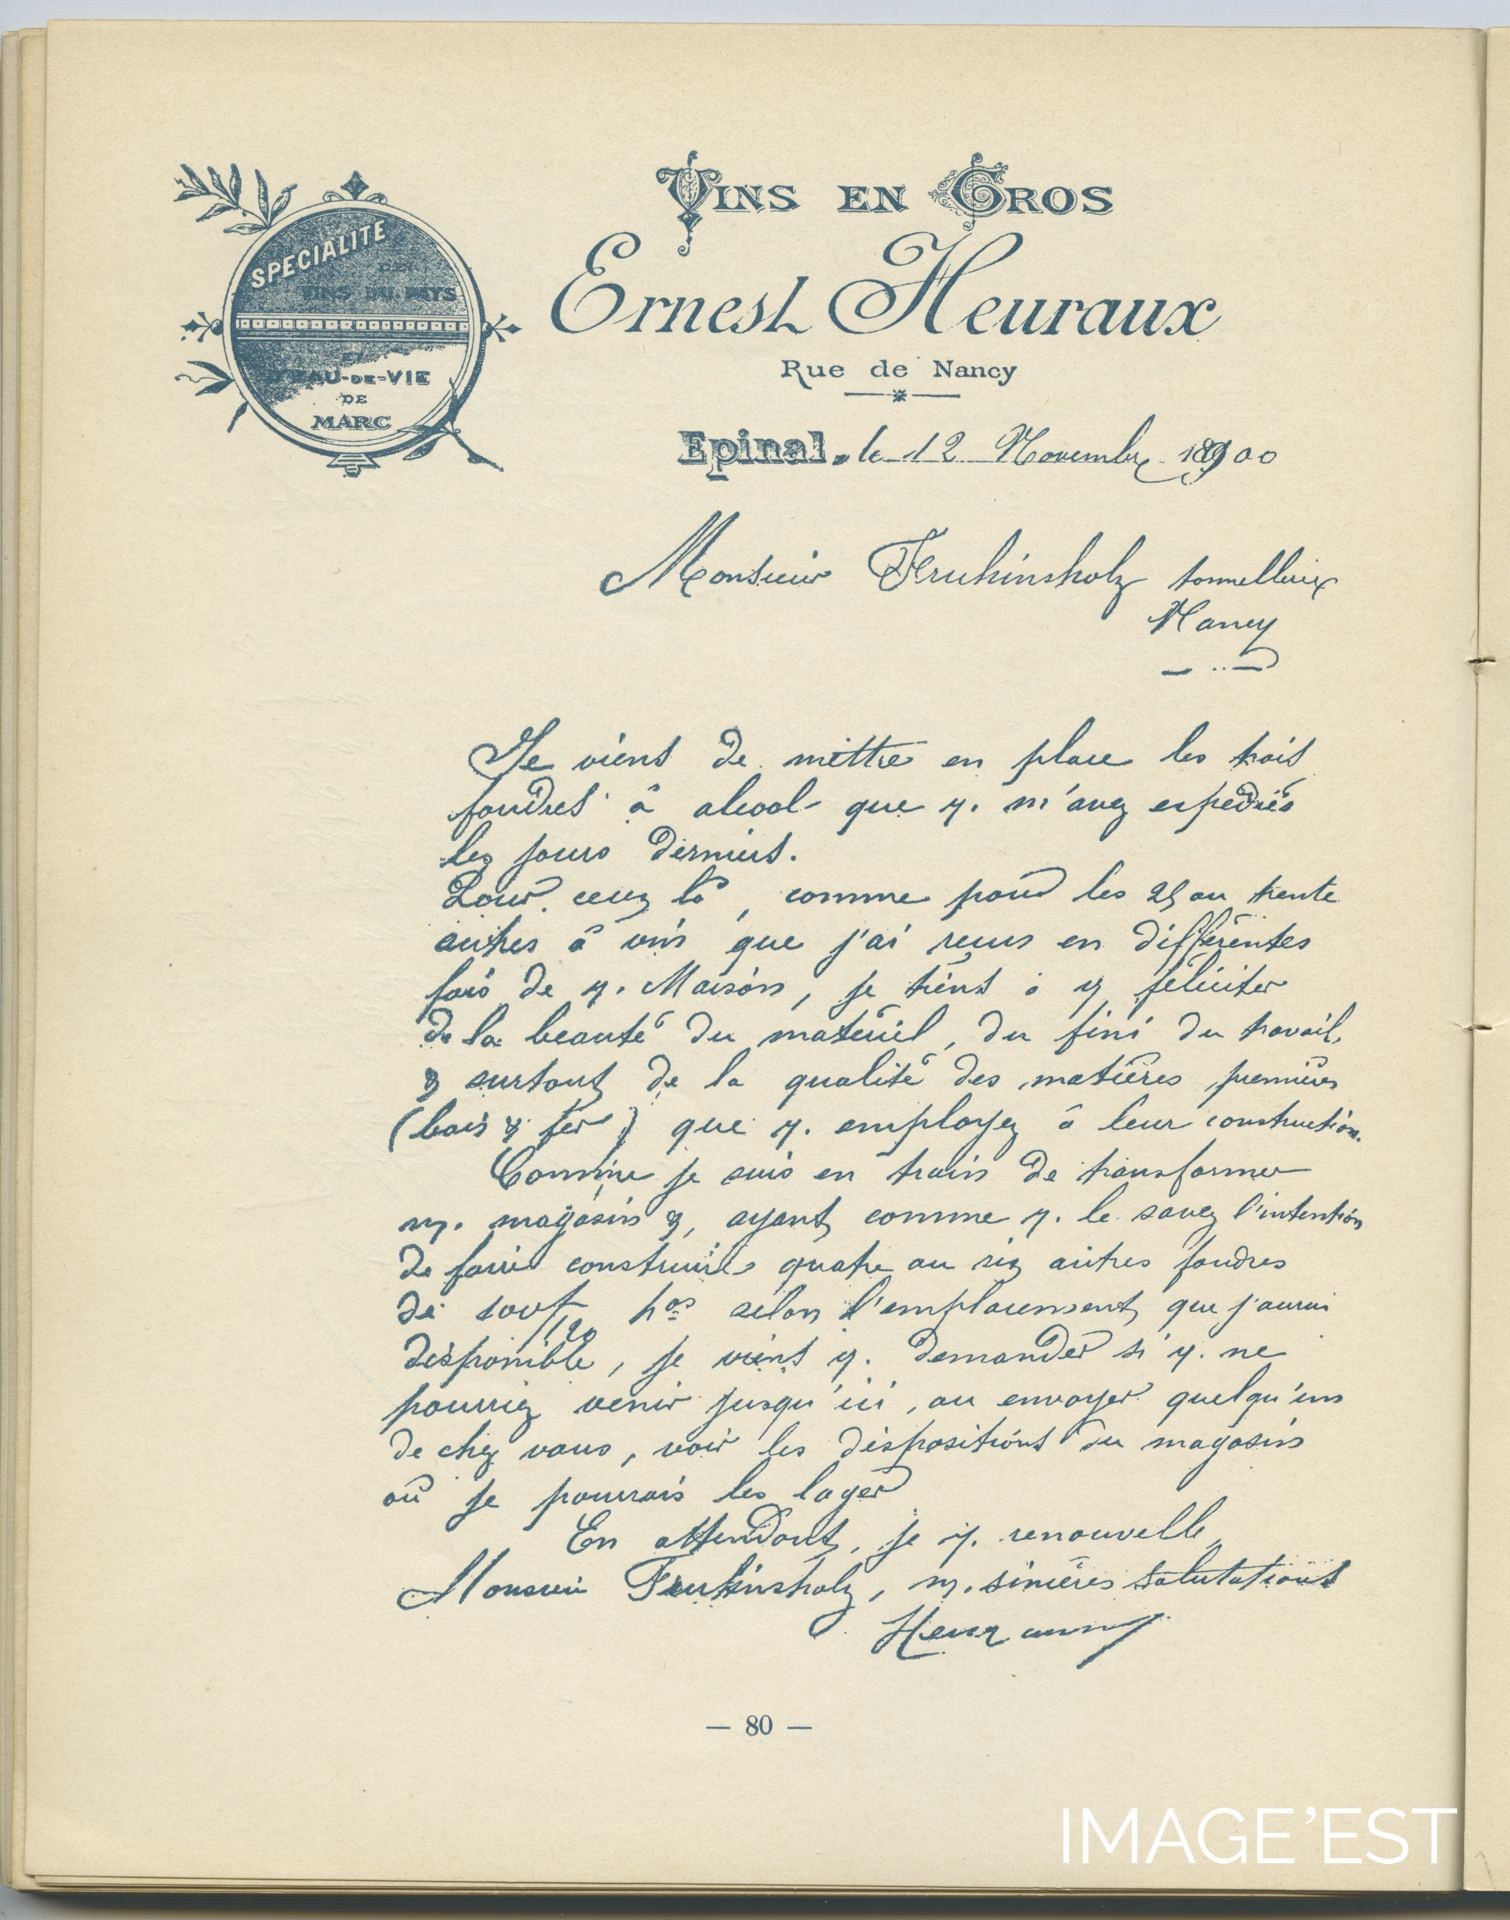 VINS EN GROS
Ernest Heuraux
Rue de Nancy
SPÉCIALITÉ
DES
VINS DU PAYS
ET
D'EAU-DE-VIE
DE
MARC
Epinal, le 12 Novembre 1900
Monsieur Fruhinsholz tonnellerie
Nancy
Je viens de mettre en place les trois
foudres à alcool que v. m'avez expédiés
les jours derniers.
Pour ceux là, comme pour les 25 ou trente
autres à vins que j'ai reçus en différentes
fois de v. Maison, je tiens à v. féliciter
de la beauté du matériel, du fini du travail,
& surtout de la qualité des matières premières
(bois & fer) que v. employez à leur construction.
Comme je suis en train de transformer
m. magasin &, ayant comme v. le savez l'intention
de faire construire quatre ou six autres foudres
de 100/120 hos selon l'emplacement que j'aurai
disponible, je viens v. demander si v. ne
pourriez venir jusqu'ici, ou envoyer quelqu'un
de chez vous, voir les dispositions du magasin
où je pourrais les loger
En attendant, je v. renouvelle,
Monsieur Fruhinsholz, m. sincères salutations
Heuraux
— 80 —
IMAGE'EST